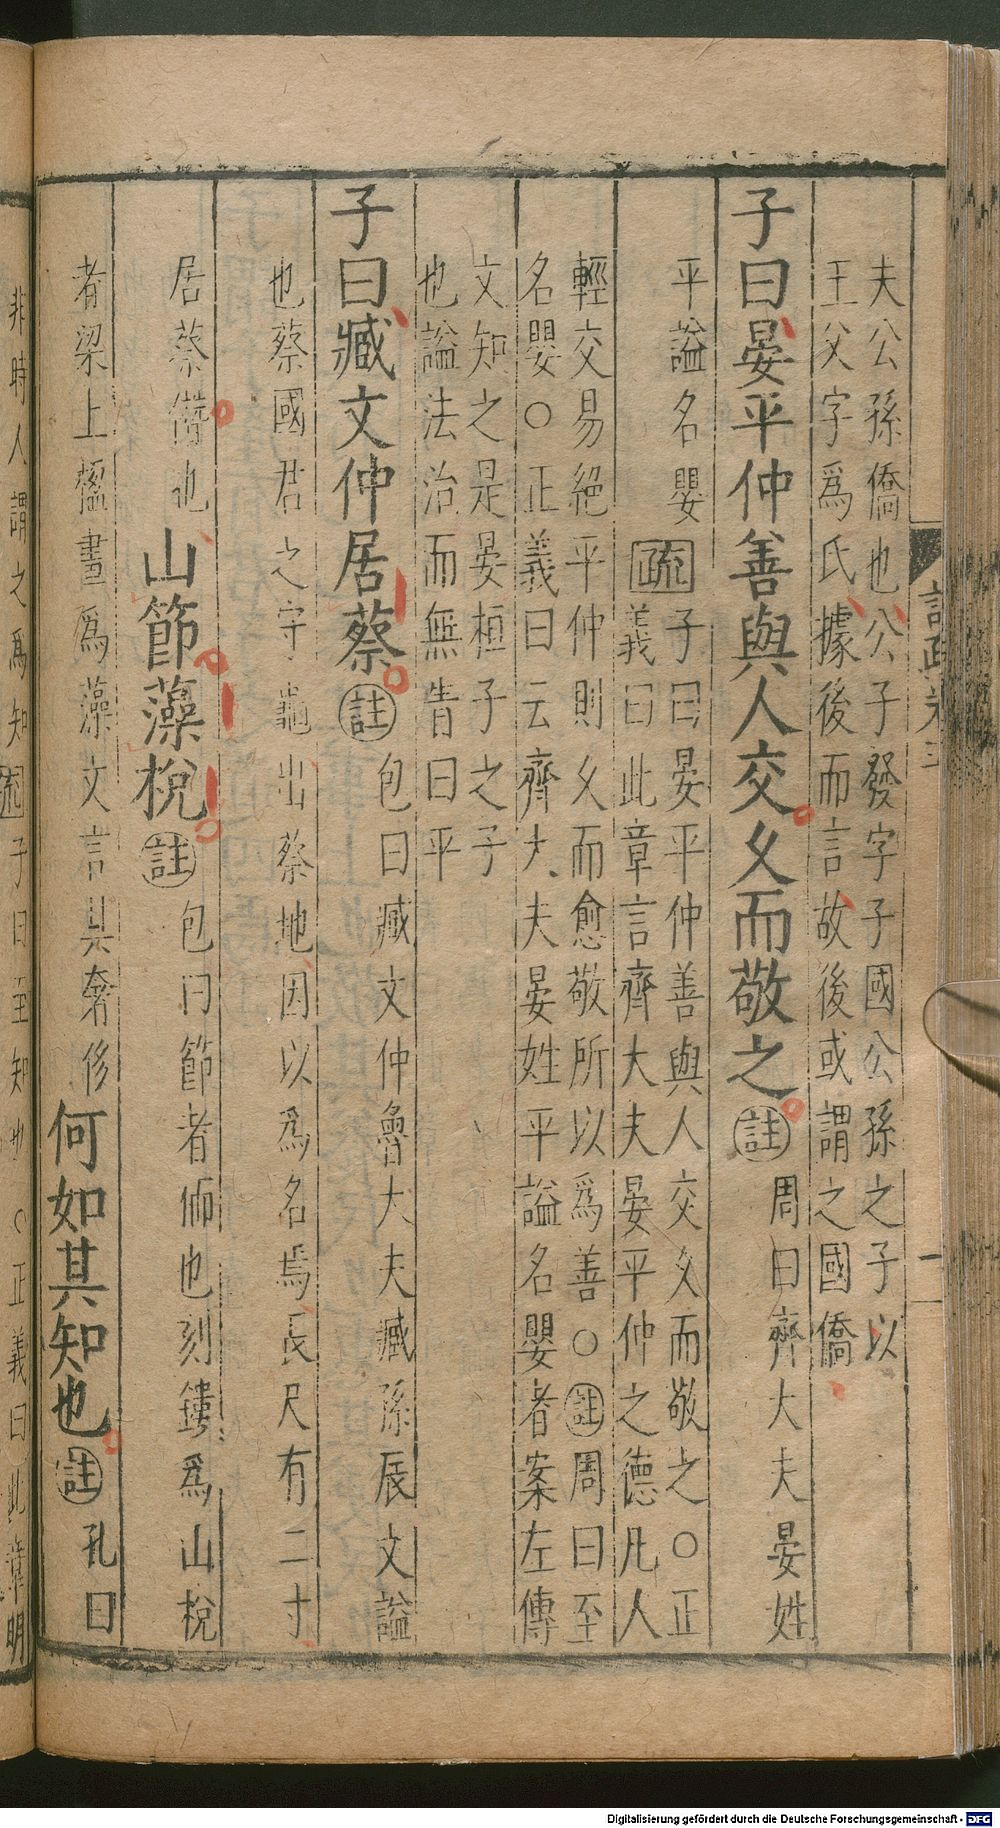 語疏卷三
一
夫公孫僑也公子發字子國公孫之子以
王父字爲氏據後而言故後或謂之國僑
子曰晏平仲善與人交久而敬之註周曰齊大夫晏姓
平謚名嬰疏子曰晏平仲善與人交久而敬之○正
義曰此章言齊大夫晏平仲之德凡人
輕交易絕平仲則久而愈敬所以爲善○註周曰至
名嬰○正義曰云齊大夫晏姓平謚名嬰者案左傳
文知之是晏桓子之子
也謚法治而無眚曰平
子曰臧文仲居蔡註包曰臧文仲魯大夫臧孫辰文謚
也蔡國君之守龜出蔡地因以爲名焉長尺有二寸
居蔡僭也山節藻梲註包曰節者栭也刻鏤爲山梲
者梁上楹畫爲藻文言其奢侈何如其知也註孔曰
非時人謂之爲知疏子曰至知也○正義曰此章明
Digitalisierung gefördert durch die Deutsche Forschungsgemeinschaft - DFG